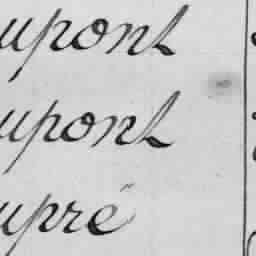 upont
upont
upré